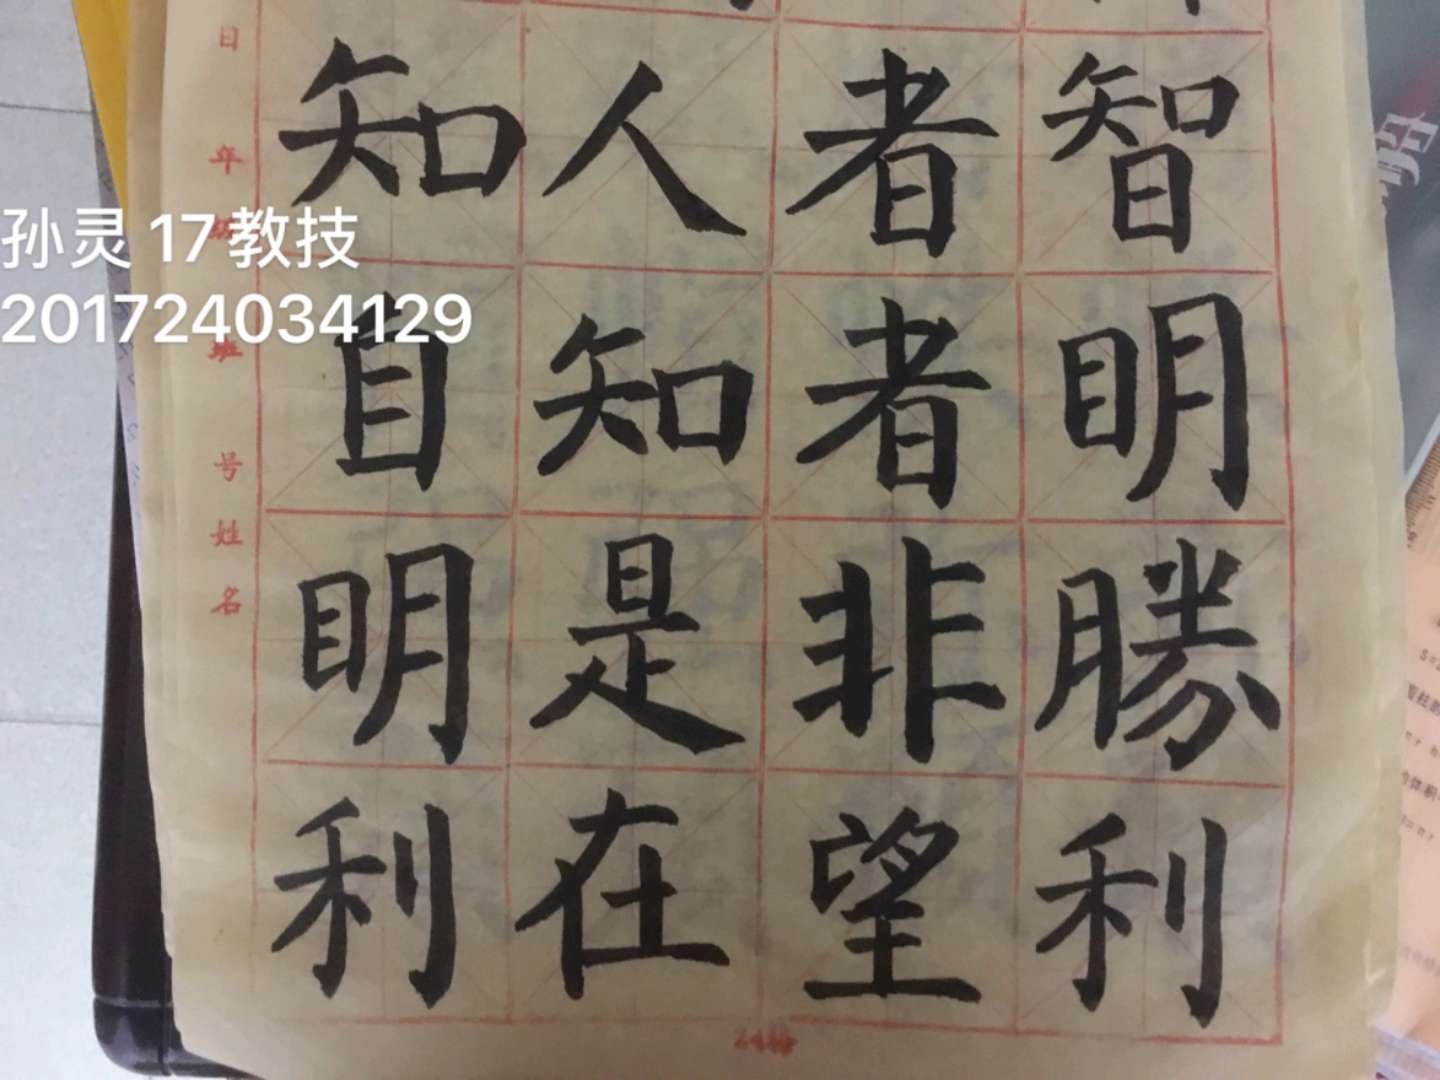 孙灵 17教技
201724034129
知人者智
自知者明
明是非勝
利在望利
日
年
班
号
姓
名
24格